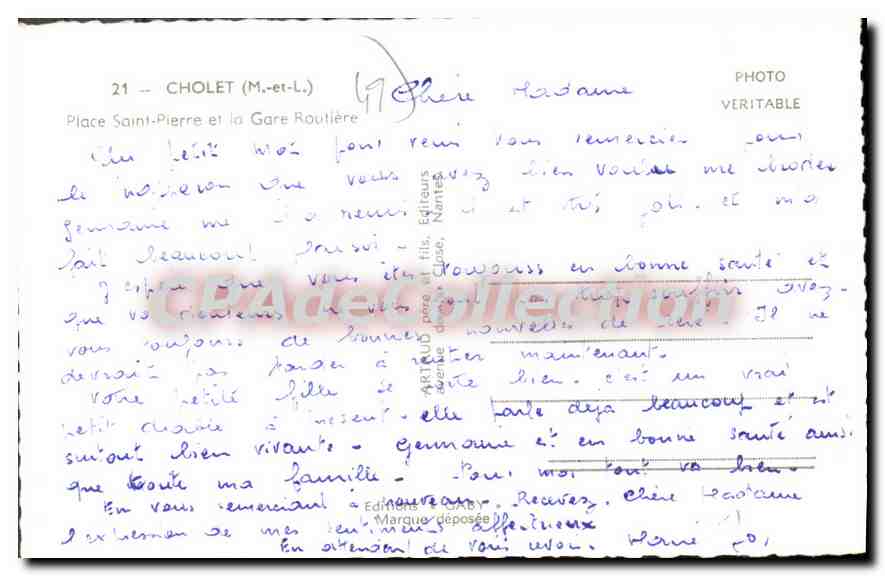 21 - CHOLET (M.-et-L.)
Place Saint-Pierre et la Gare Routière
49
PHOTO
VERITABLE
Chère Madame
Un petit mot pour vous remercier pour
le napperon que vous avez bien voulu me broder
Germaine me l'a remis il et très joli et m'a
fait beaucoup plaisir.
J'espère que vous êtes toujours en bonne santé et
que vos douleurs ne vous pas trop souffrir avez-
vous toujours de bonnes nouvelles de Il ne
devrait pas tarder à rentrer maintenant.
Votre petite fille se porte bien. c'est un vrai
petit diable à présent. elle parle déjà beaucoup et est
surtout bien vivante. Germaine et en bonne santé ainsi
que toute ma famille. Pour moi tout va bien.
En vous remerciant à nouveau. Recevez, Chère Madame
l'expression de mes sentiments affectueux
En attendant de vous revoir. Marie
ARTAUD père et fils, Editeurs
avenue de la Close, Nantes
Editions "GABY"
Marque déposée
CPAdeCollection